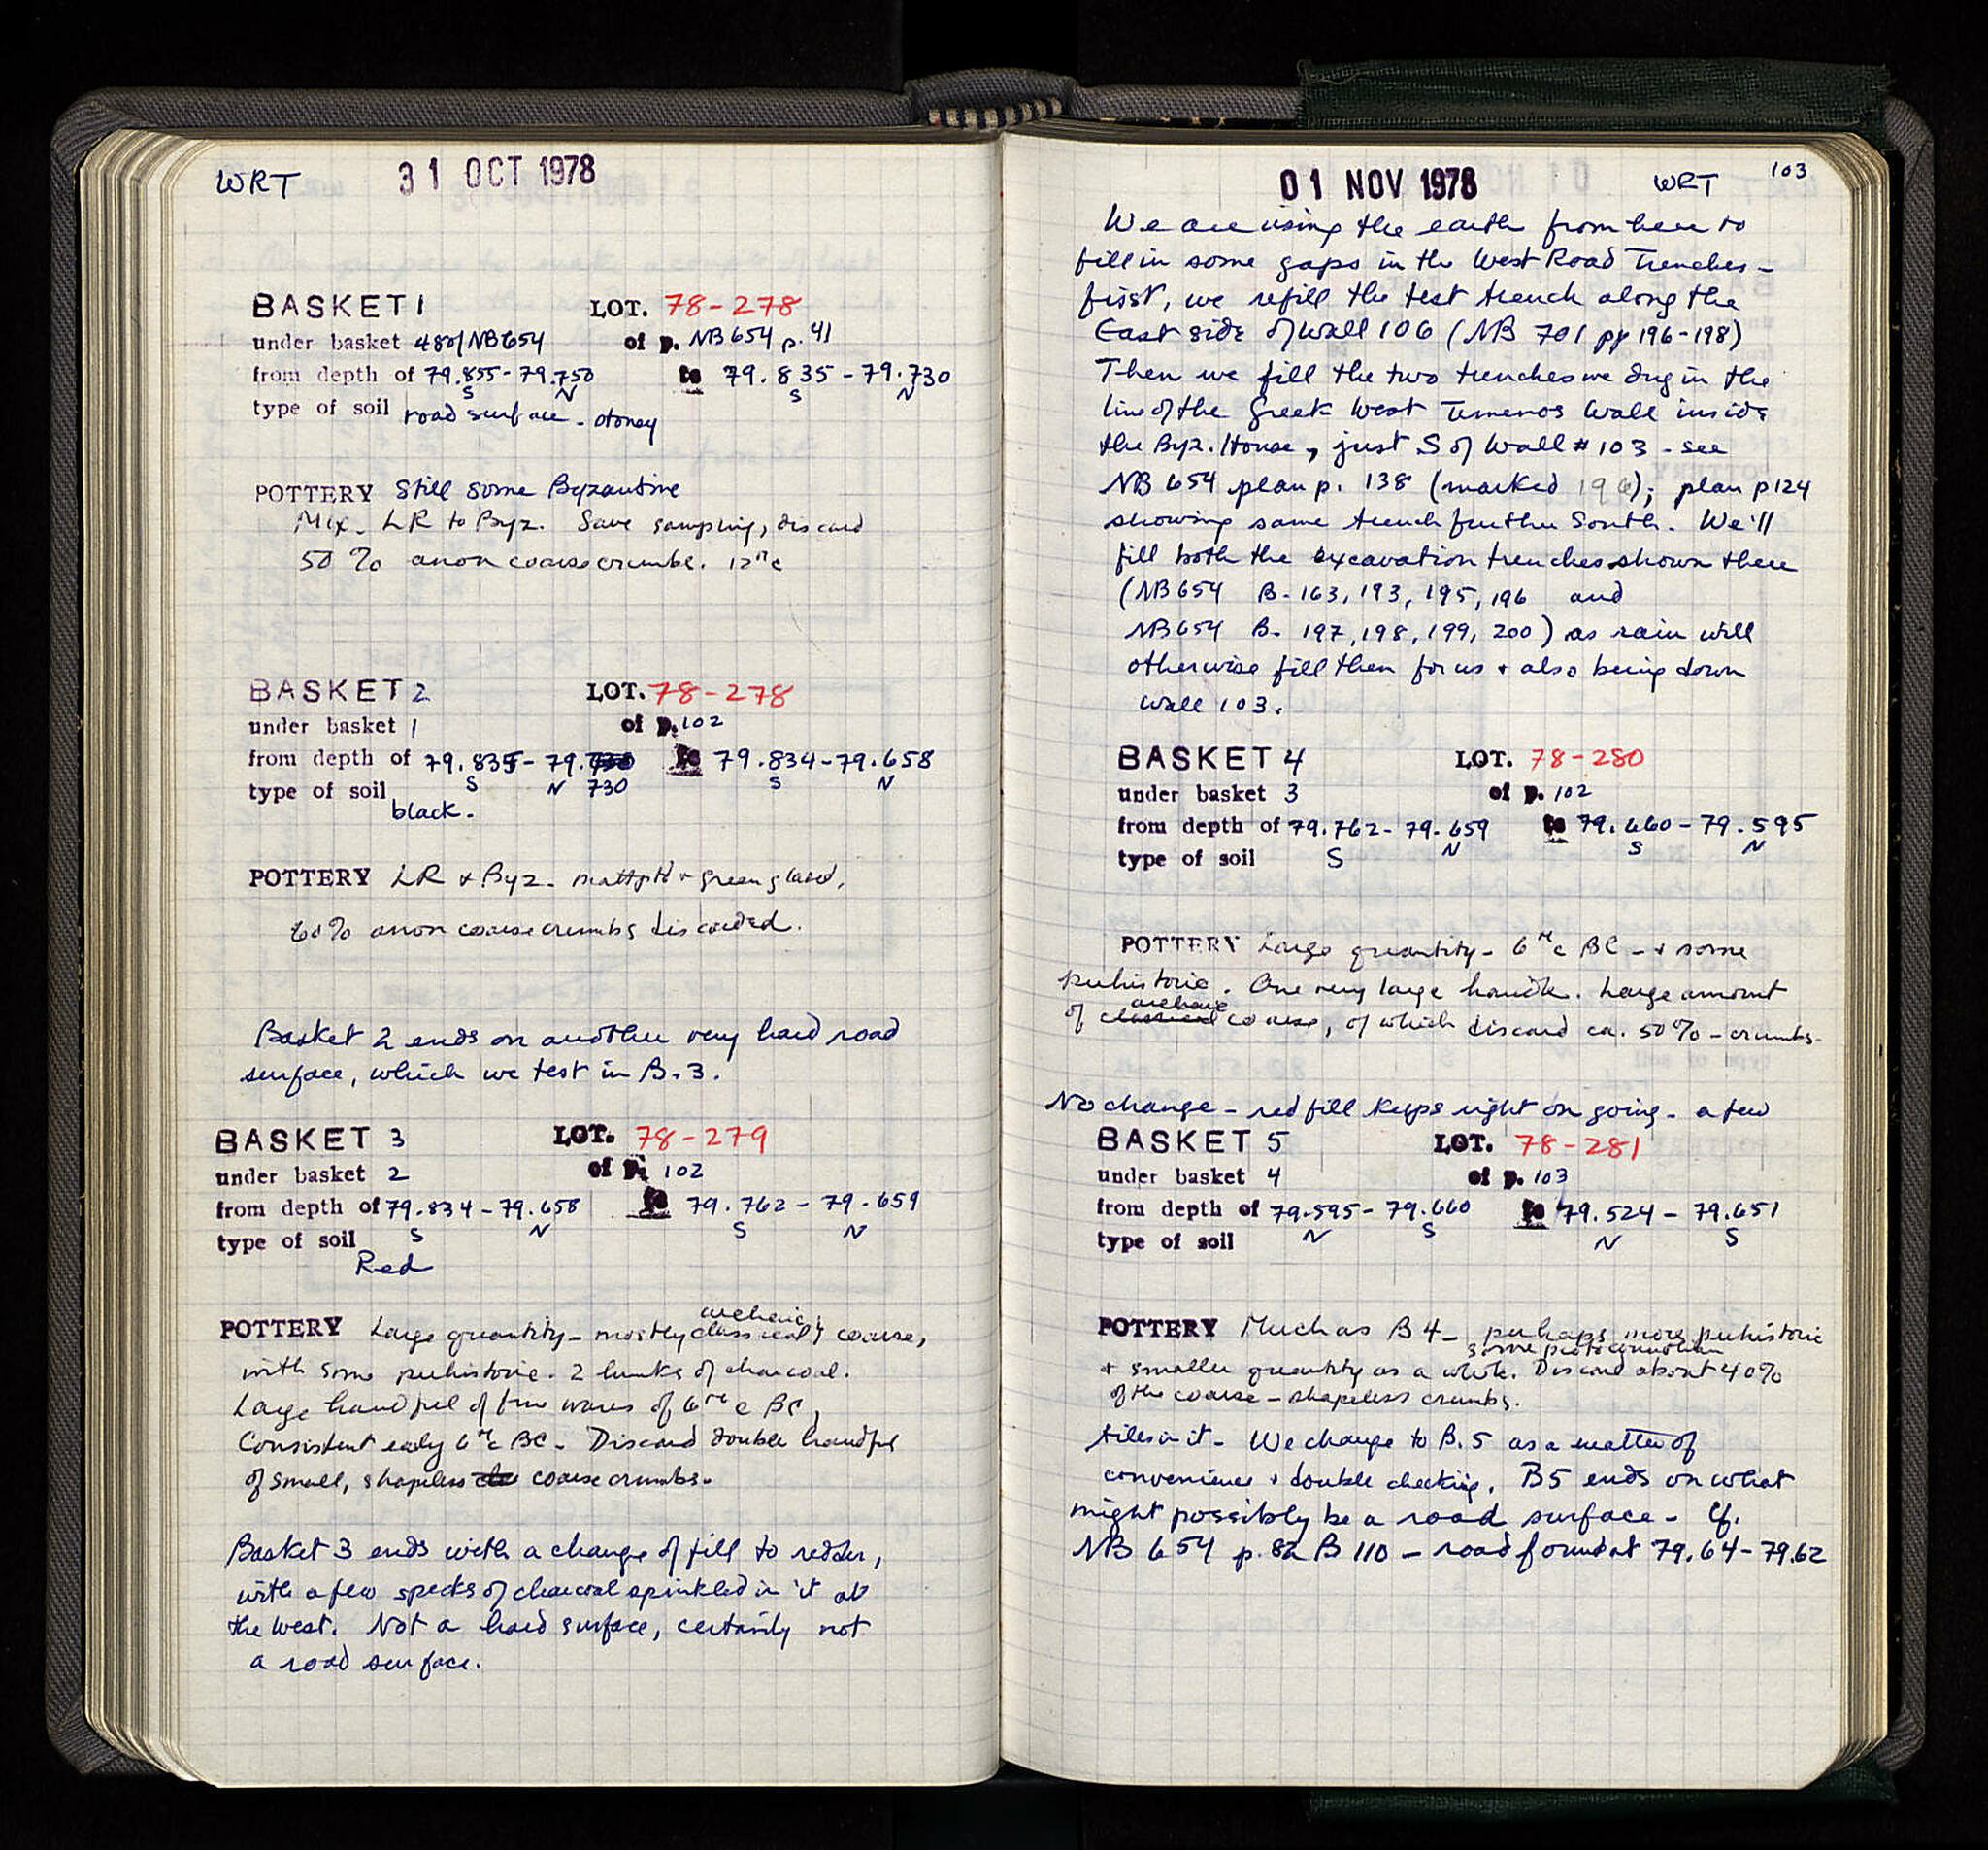 WRT 31 OCT 1978
BASKET 1 LOT. 78-278
under basket 48 of NB654 of p. NB654 p. 41
from depth of 79.855 - 79.750 to 79.835 - 79.730
S N S N
type of soil road surface - stoney
POTTERY Still some Byzantine
Mix - LR to Byz. Save sampling, discard
50% anon coarse crumbs. 12th c
BASKET 2 LOT. 78-278
under basket 1 of p. 102
from depth of 79.835 - 79. to 79.834 - 79.658
S N 730 S N
type of soil black.
POTTERY LR & Byz. matt ptd & green glazed,
60% anon coarse crumbs discarded.
Basket 2 ends on another very hard road
surface, which we test in B.3.
BASKET 3 LOT. 78-279
under basket 2 of p. 102
from depth of 79.834 - 79.658 to 79.762 - 79.659
S N S N
type of soil Red
archaic
POTTERY Large quantity - mostly classical & coarse,
with some prehistoric. 2 hunks of charcoal.
Large handful of fine wares of 6th c BC,
Consistent early 6th c BC - Discard double handful
of small, shapeless coarse crumbs.
Basket 3 ends with a change of fill to redder,
with a few specks of charcoal sprinkled in it at
the West. Not a hard surface, certainly not
a road surface.
01 NOV 1978 WRT 103
We are using the earth from here to
fill in some gaps in the West Road Trenches -
first, we refill the test trench along the
East side of Wall 106 (NB 701 pp 196-198)
Then we fill the two trenches we dug in the
line of the Greek West Temenos Wall inside
the Byz. House, just S of Wall #103 - see
NB 654 plan p. 138 (marked 196); plan p 124
showing same trench further South. We'll
fill both the excavation trenches shown there
(NB654 B. 163, 193, 195, 196 and
NB654 B. 197, 198, 199, 200) as rain will
otherwise fill them for us & also bring down
Wall 103.
BASKET 4 LOT. 78-280
under basket 3 of p. 102
from depth of 79.762 - 79.659 to 79.660 - 79.595
S N S N
type of soil
POTTERY Large quantity - 6th c BC - & some
prehistoric. One very large handle. Large amount
archaic
of classical coarse, of which discard ca. 50% - crumbs.
No change - red fill keeps right on going - a few
BASKET 5 LOT. 78-281
under basket 4 of p. 103
from depth of 79.595 - 79.660 to 79.524 - 79.651
N S N S
type of soil
POTTERY Much as B 4 - perhaps more prehistoric
some protocorinthian
& smaller quantity as a whole. Discard about 40%
of the coarse - shapeless crumbs.
tiles in it - We change to B.5 as a matter of
convenience & double checking. B5 ends on what
might possibly be a road surface - Cf.
NB 654 p. 82 B 110 - road found at 79.64 - 79.62